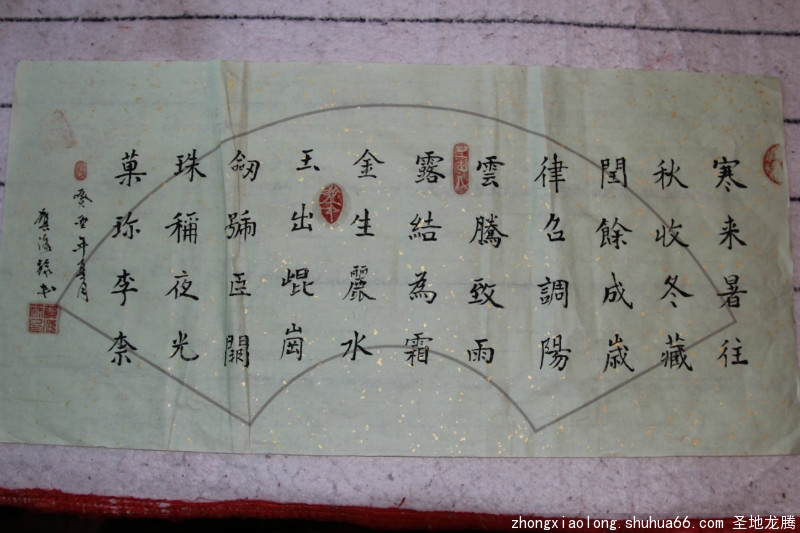 寒来暑往
秋收冬藏
閏餘成歲
律召調陽
雲騰致雨
露結為霜
金生麗水
玉出崐崗
劒號巨闕
珠稱夜光
菓珎李柰
癸丑年夏月
zhongxiaolong.shuhua66.com 圣地龙腾